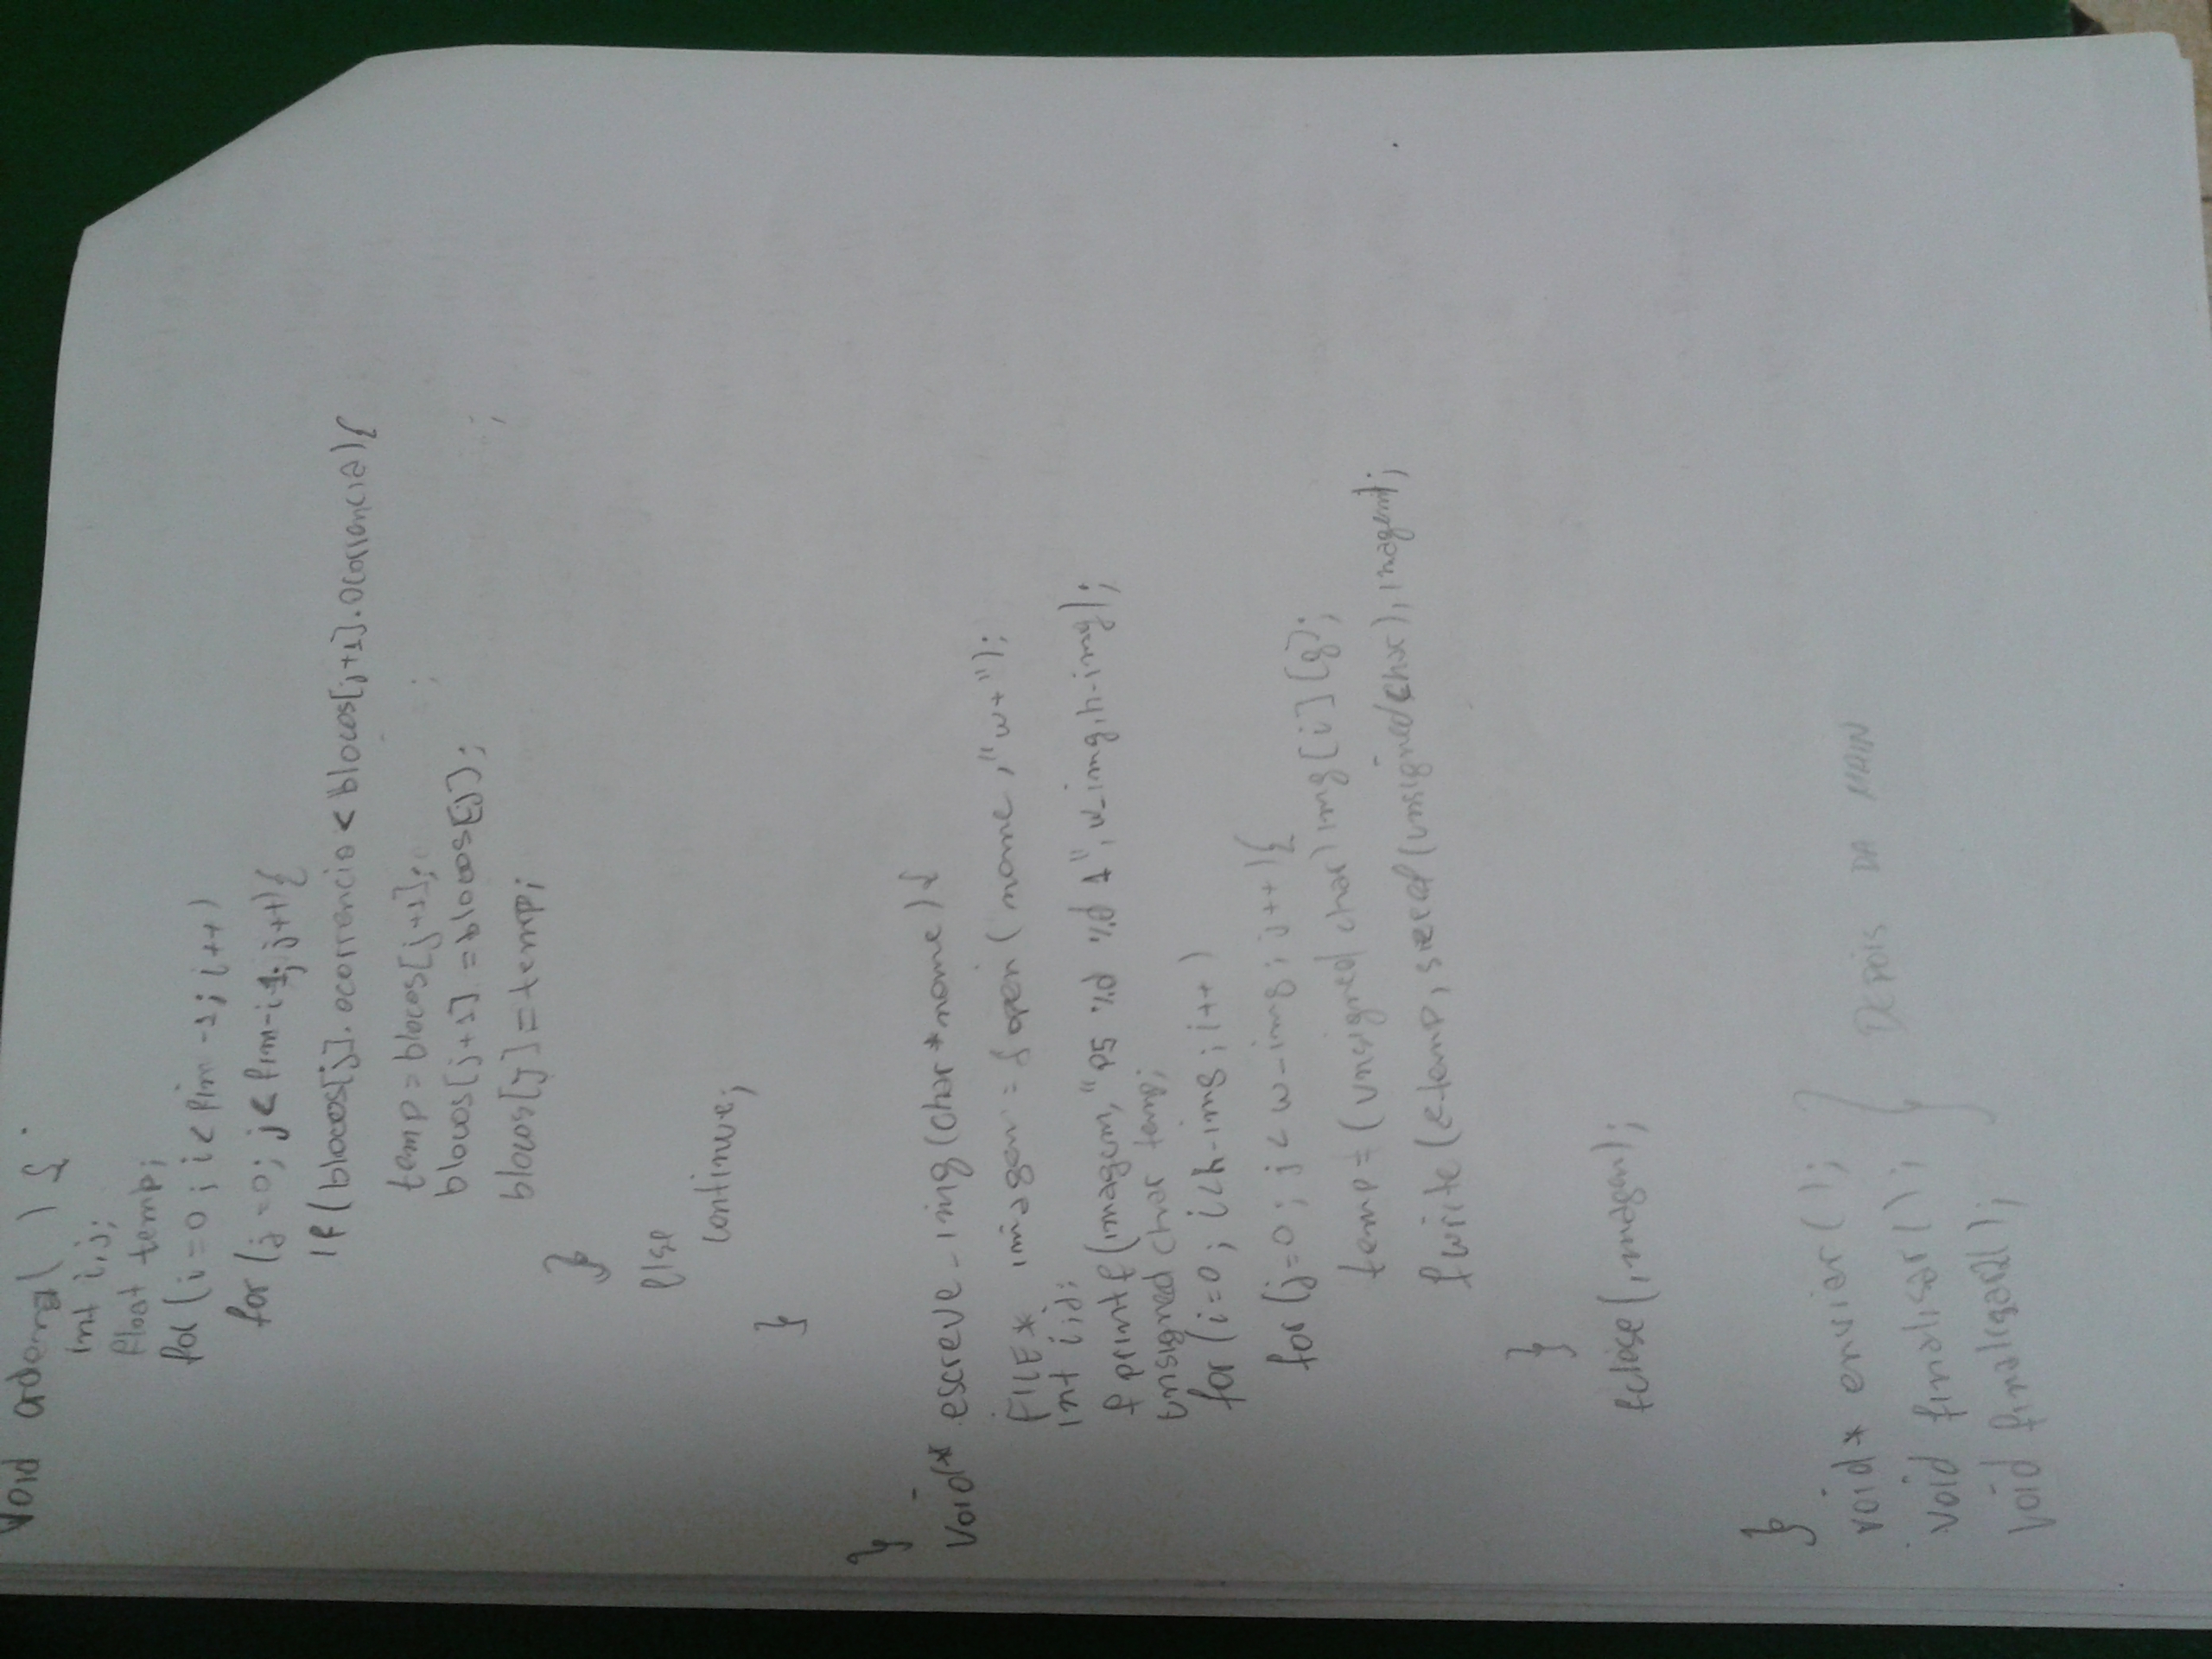 void ordena( ) {
int i,j;
float temp;
for (i=0; i< fim -1; i++)
for (j=0; j< fim-i-1; j++){
if(blocos[j].ocorrencia < blocos[j+1].ocorrencia){
temp = blocos[j+1];
blocos[j+1] = blocos[j];
blocos[j] = temp;
}
else
continue;
}
}
void* escreve_img(char *nome){
FILE* imagem = fopen( nome ,"w+");
int i,j;
fprintf(imagem, "P5 %d %d 1", w_img, h_img);
unsigned char temp;
for (i=0; i<h_img; i++)
for (j=0; j< w_img; j++){
temp = (unsigned char) img[i][j];
fwrite (&temp, sizeof(unsigned char), imagem);
}
fclose (imagem);
}
void* enviar( );
void finalizar( );
void finalizar2( );
DEPOIS DA MAIN